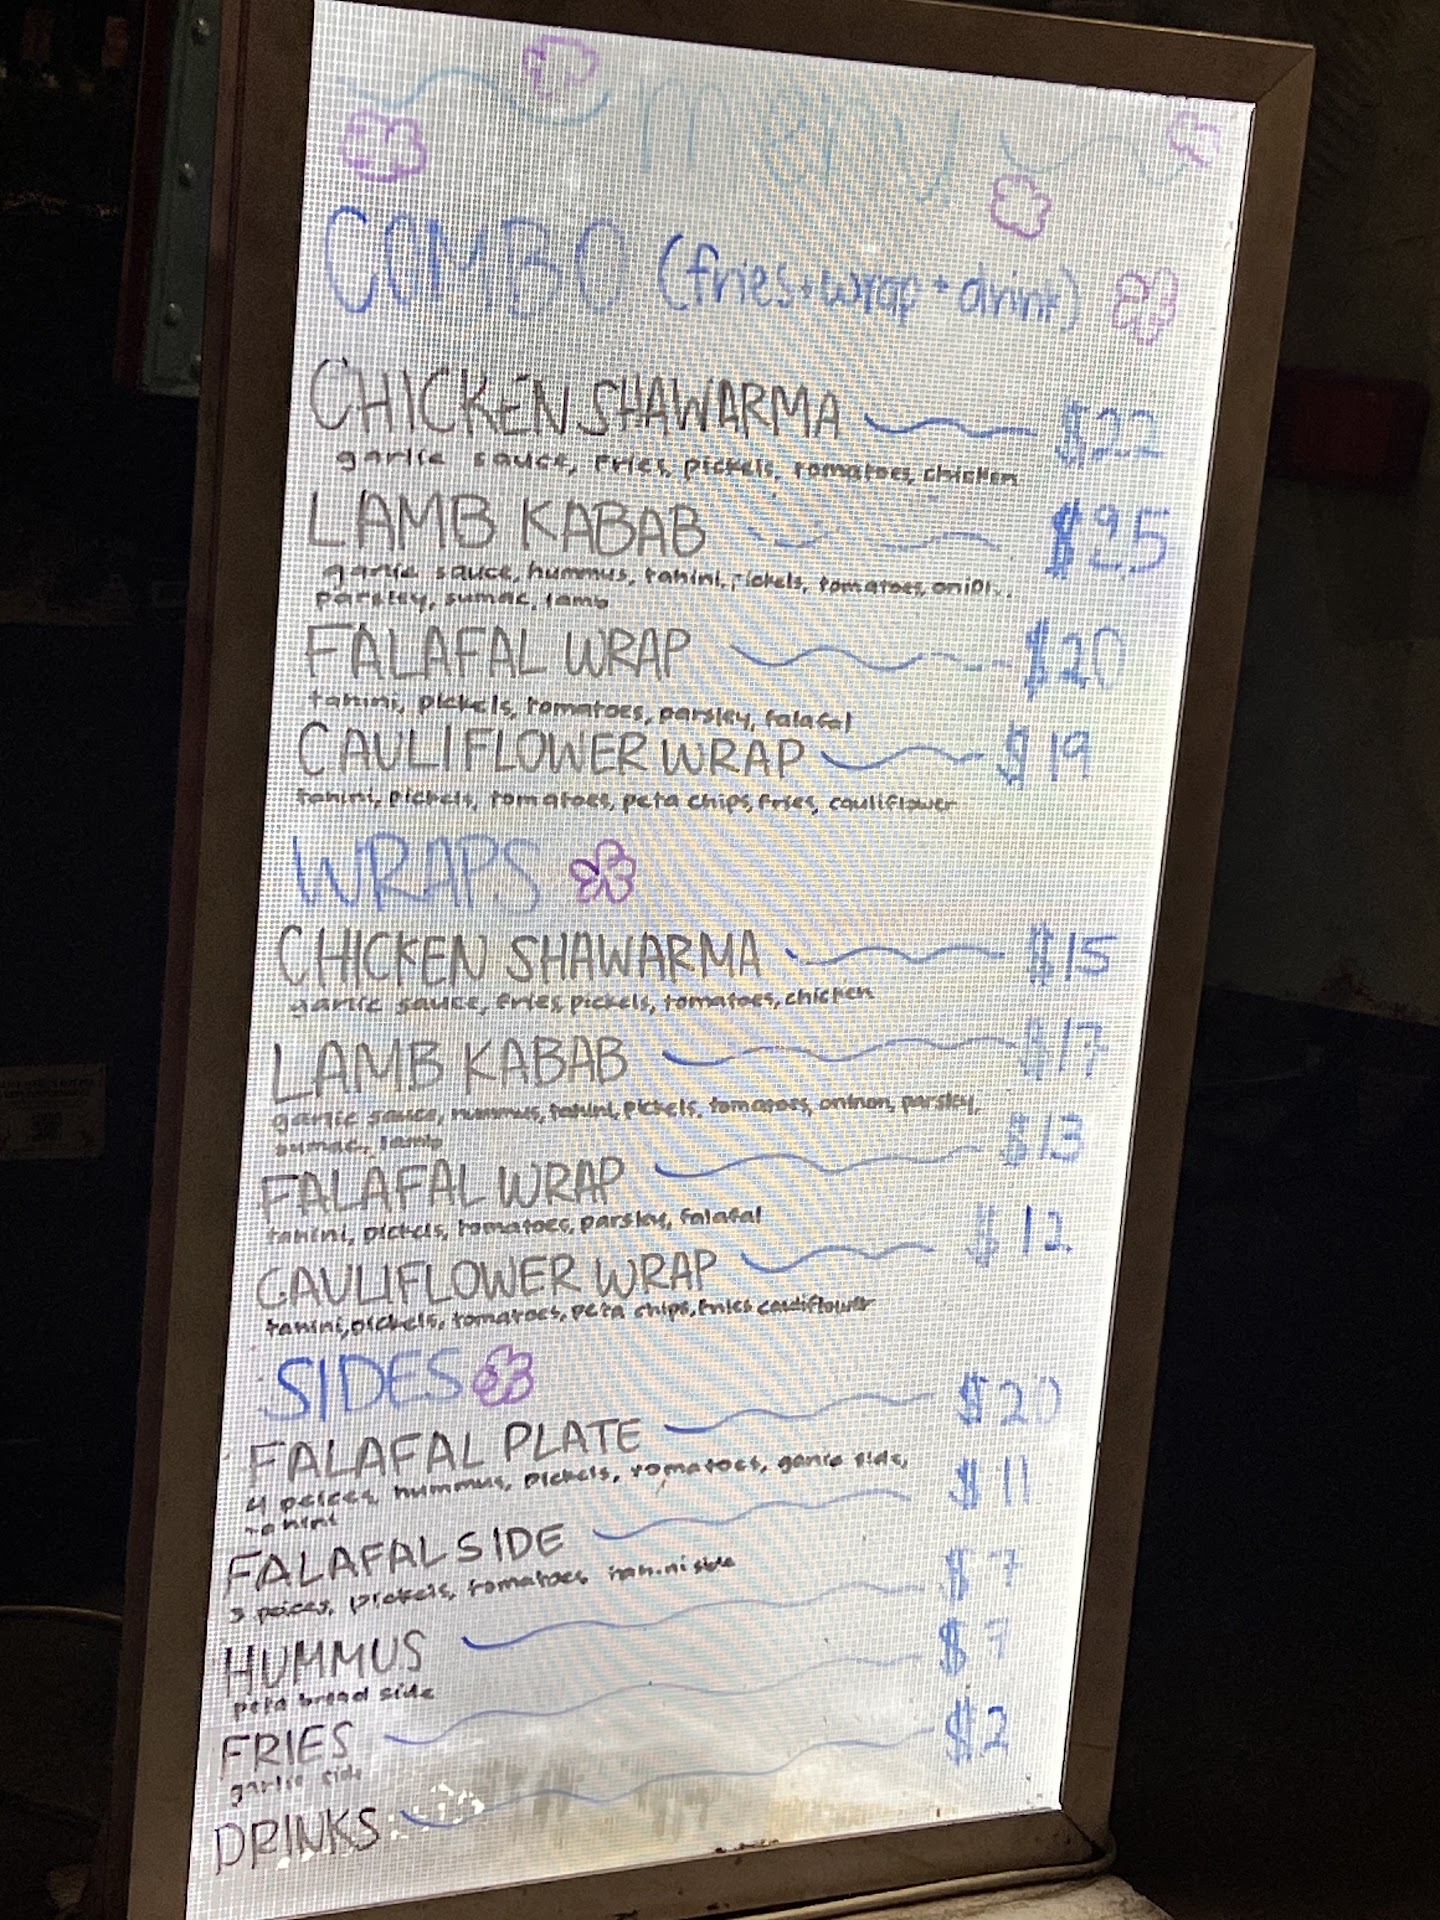 menu
COMBO (fries+wrap+drink)
CHICKEN SHAWARMA $22
garlic sauce, fries, pickels, tomatoes, chicken
LAMB KABAB $25
garlic sauce, hummus, tahini, pickels, tomatoes, onion,
parsley, sumac, lamb
FALAFAL WRAP $20
tahini, pickels, tomatoes, parsley, falafal
CAULIFLOWER WRAP $19
tahini, pickels, tomatoes, peta chips, fries, cauliflower
WRAPS
CHICKEN SHAWARMA $15
garlic sauce, fries, pickels, tomatoes, chicken
LAMB KABAB $17
garlic sauce, hummus, tahini, pickels, tomatoes, oninon, parsley,
sumac, lamb
FALAFAL WRAP $13
tahini, pickels, tomatoes, parsley, falafal
CAULIFLOWER WRAP $12
tahini, pickels, tomatoes, peta chips, fries cauliflower
SIDES
FALAFAL PLATE $20
4 peices, hummus, pickels, tomatoes, garlic side,
tahini
FALAFAL SIDE $11
3 peices, pickels, tomatoes, tahini side
HUMMUS $7
peta bread side
FRIES $7
garlic side
DRINKS $2